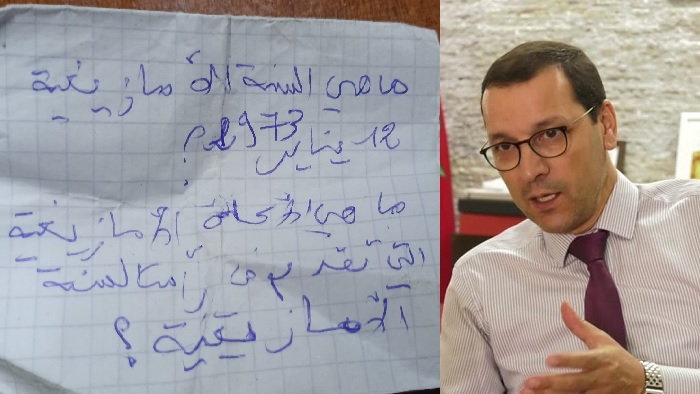 ما هي السنة الأمازيغية
12 يناير 2973؟
ما هي الأكلة الأمازيغية
التي تقدم في رأس السنة
الأمازيغية ؟